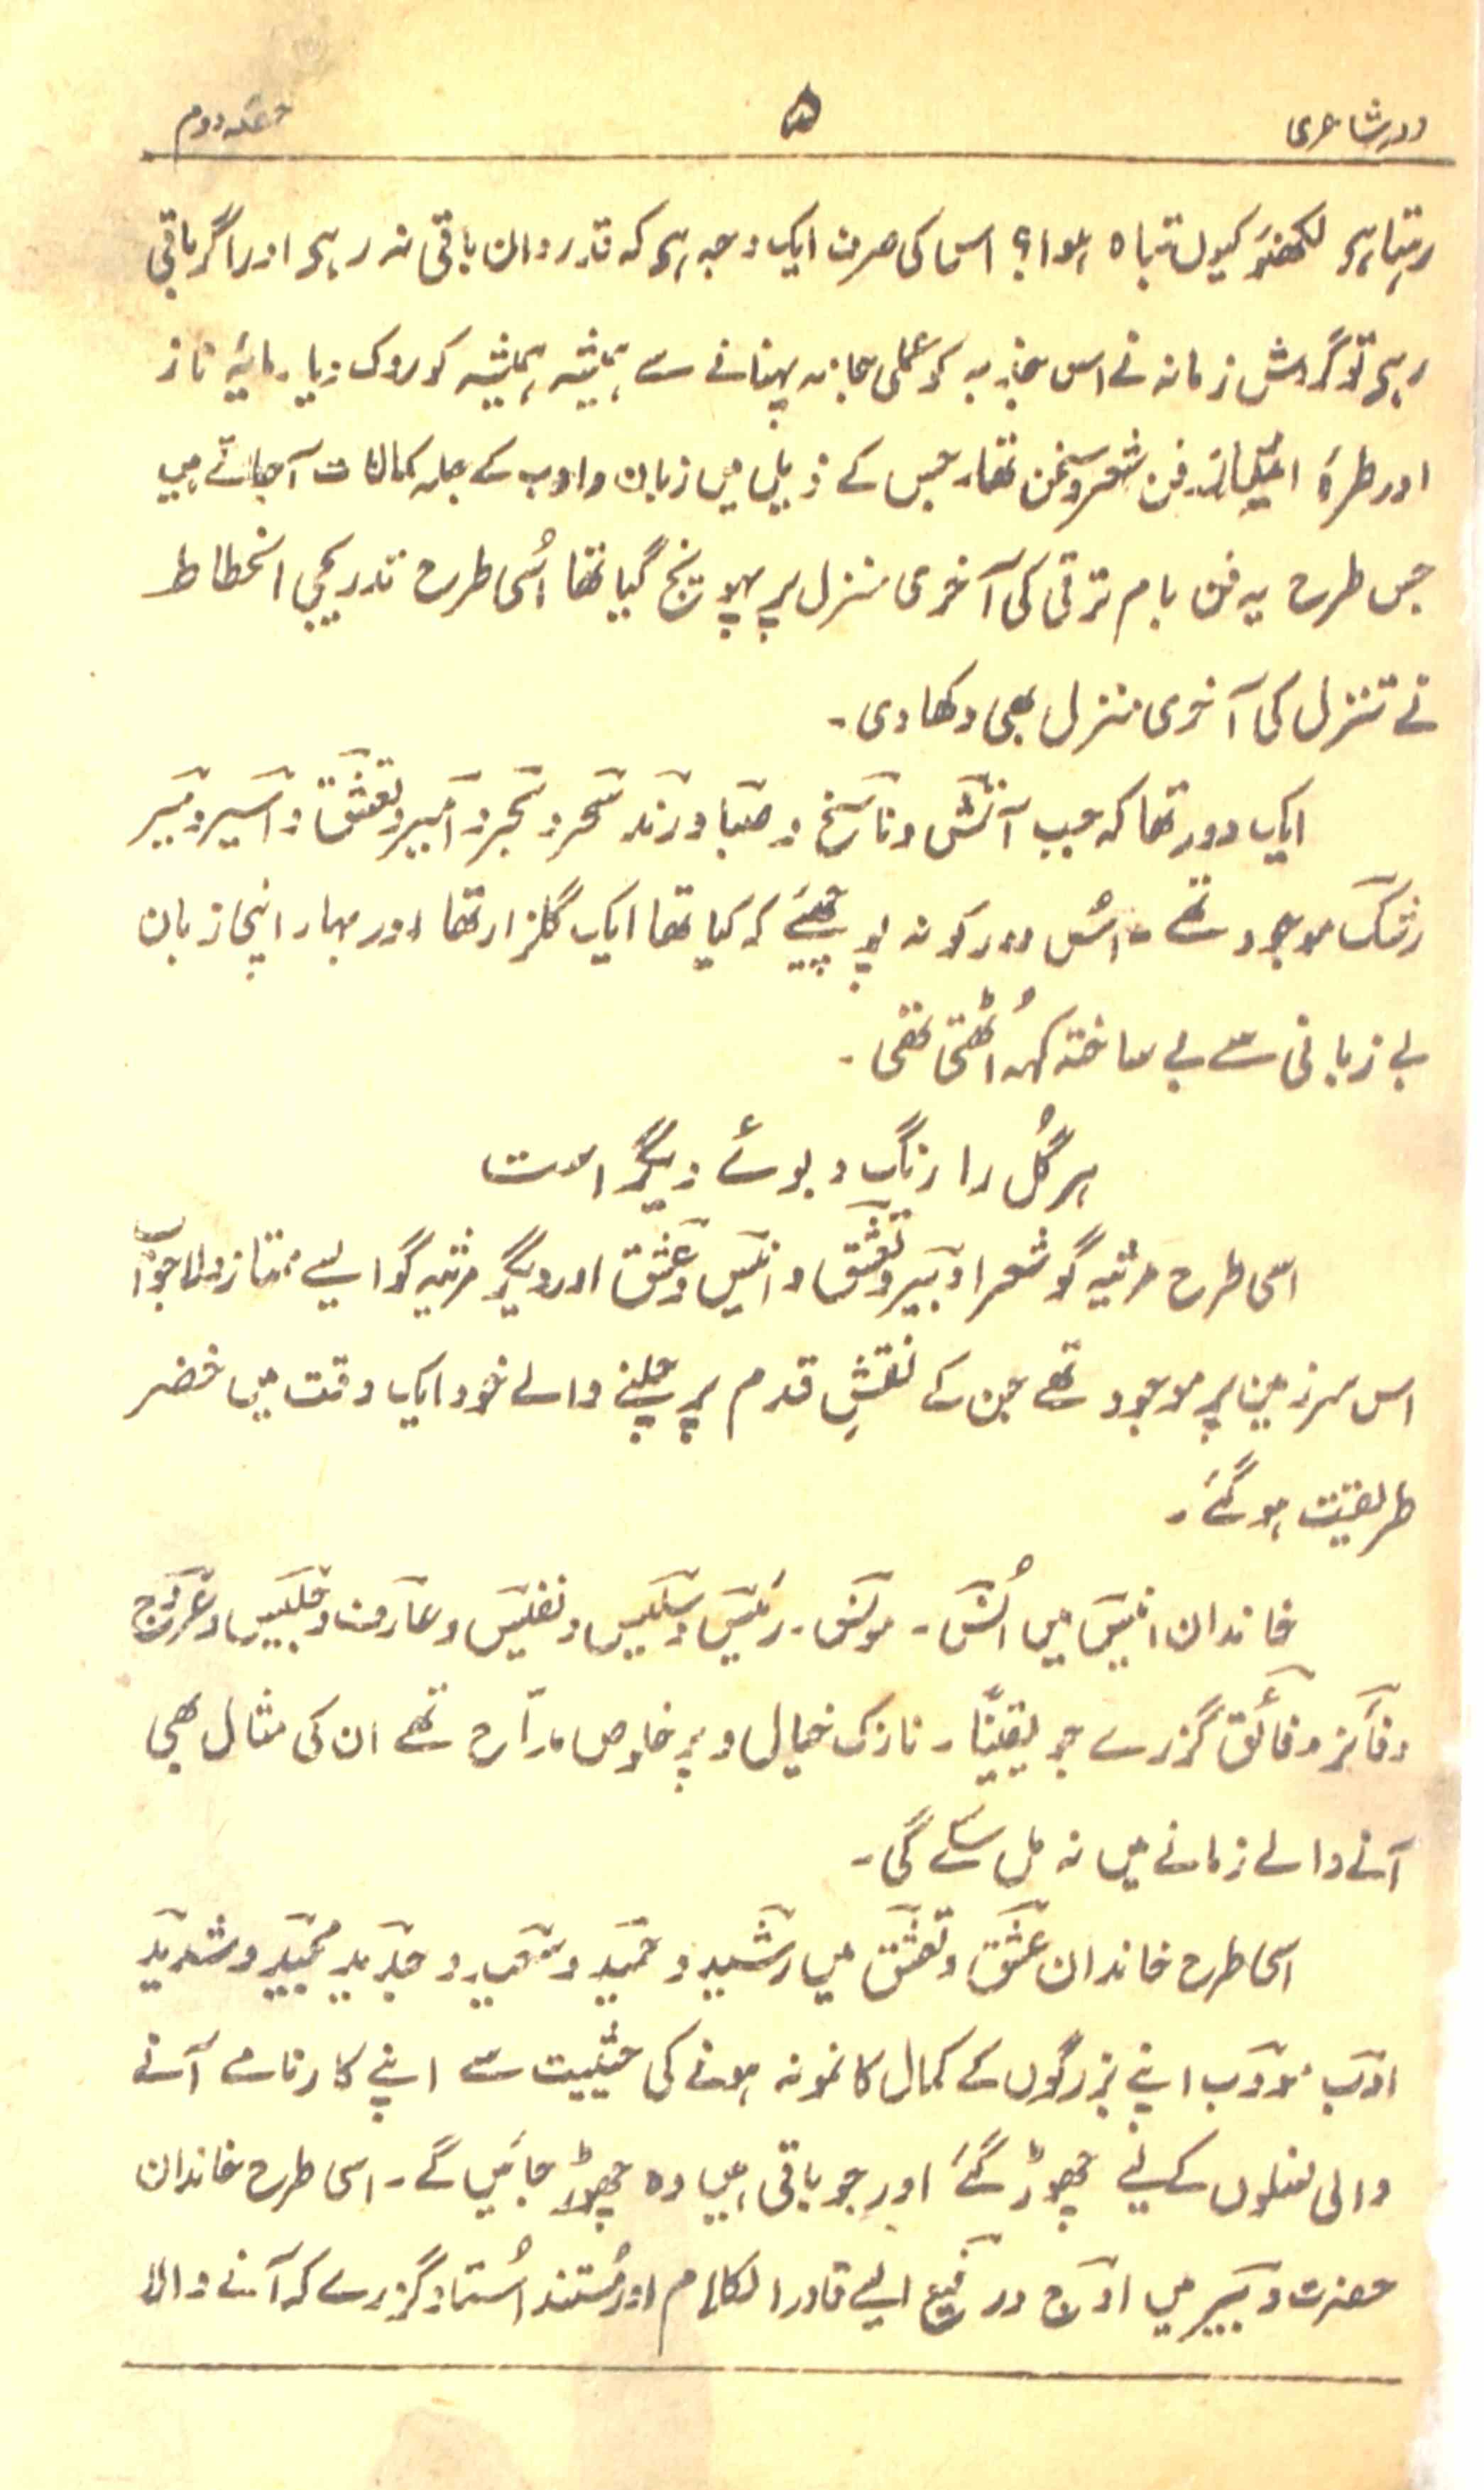 دور شاعری ۵ حصّہ دوم
رہتا ہی لکھنؤ کیوں تباہ ہوا؟ اس کی صرف ایک وجہ ہی کہ قدردان باقی نہ رہی اور اگر باقی
رہی تو گردش زمانہ نے اس جذبہ کو عملی جامہ پہنانے سے ہمیشہ ہمیشہ کو روک دیا۔ مایۂ ناز
اور طرۂ امتیاز۔ فن شعر و سخن تھا۔ جس کے ذیل میں زبان و ادب کے جملہ کمالات آجاتے ہیں
جس طرح یہ فن بام ترقی کی آخری منزل پر پہونچ گیا تھا اُسی طرح تدریجی انحطاط
نے تنزل کی آخری منزل بھی دکھا دی۔
ایک دور تھا کہ جب آتشؔ و ناسخؔ و صباؔ و رندؔ سحرؔ و بحرؔ و امیرؔ و تعشقؔ و اسیرؔ و منیرؔ
رشکؔ موجود تھے۔ اُس دور کو نہ پوچھئے کہ کیا تھا ایک گلزار تھا اور بہار اپنی زبان
بے زبانی سے بے ساختہ کہہ اُٹھتی تھی۔
ہر گُل را رنگ و بوئے دیگر است
اسی طرح مرثیہ گو شعرا دبیرؔ و تعشقؔ و انیسؔ و عشقؔ اور دیگر مرثیہ گو ایسے ممتاز و لاجواب
اس سرزمین پر موجود تھے جن کے نقشِ قدم پر چلنے والے خود ایک وقت میں خضر
طریقت ہوگئے۔
خاندان انیسؔ میں اُنسؔ۔ مونسؔ۔ رئیسؔ و سلیسؔ و نفیسؔ و عارفؔ و جلیسؔ و عروجؔ
و فائزؔ و فائقؔ گزرے جو یقیناً۔ نازک خیال و پر خلوص مدّاح تھے ان کی مثال بھی
آنے والے زمانے میں نہ مل سکے گی۔
اسی طرح خاندان عشقؔ و تعشقؔ میں رشیدؔ و حمیدؔ و سعیدؔ و جدیدؔ مجیدؔ و شدیدؔ
ادبؔ مودبؔ اپنے بزرگوں کے کمال کا نمونہ ہونے کی حیثیت سے اپنے کارنامے آنے
والی نسلوں کے لیے چھوڑ گئے اور جو باقی ہیں وہ چھوڑ جائیں گے۔ اسی طرح خاندان
حضرت دبیرؔ میں اوجؔ و رفیعؔ ایسے قادر الکلام اور مُستند اُستاد گزرے کہ آنے والا